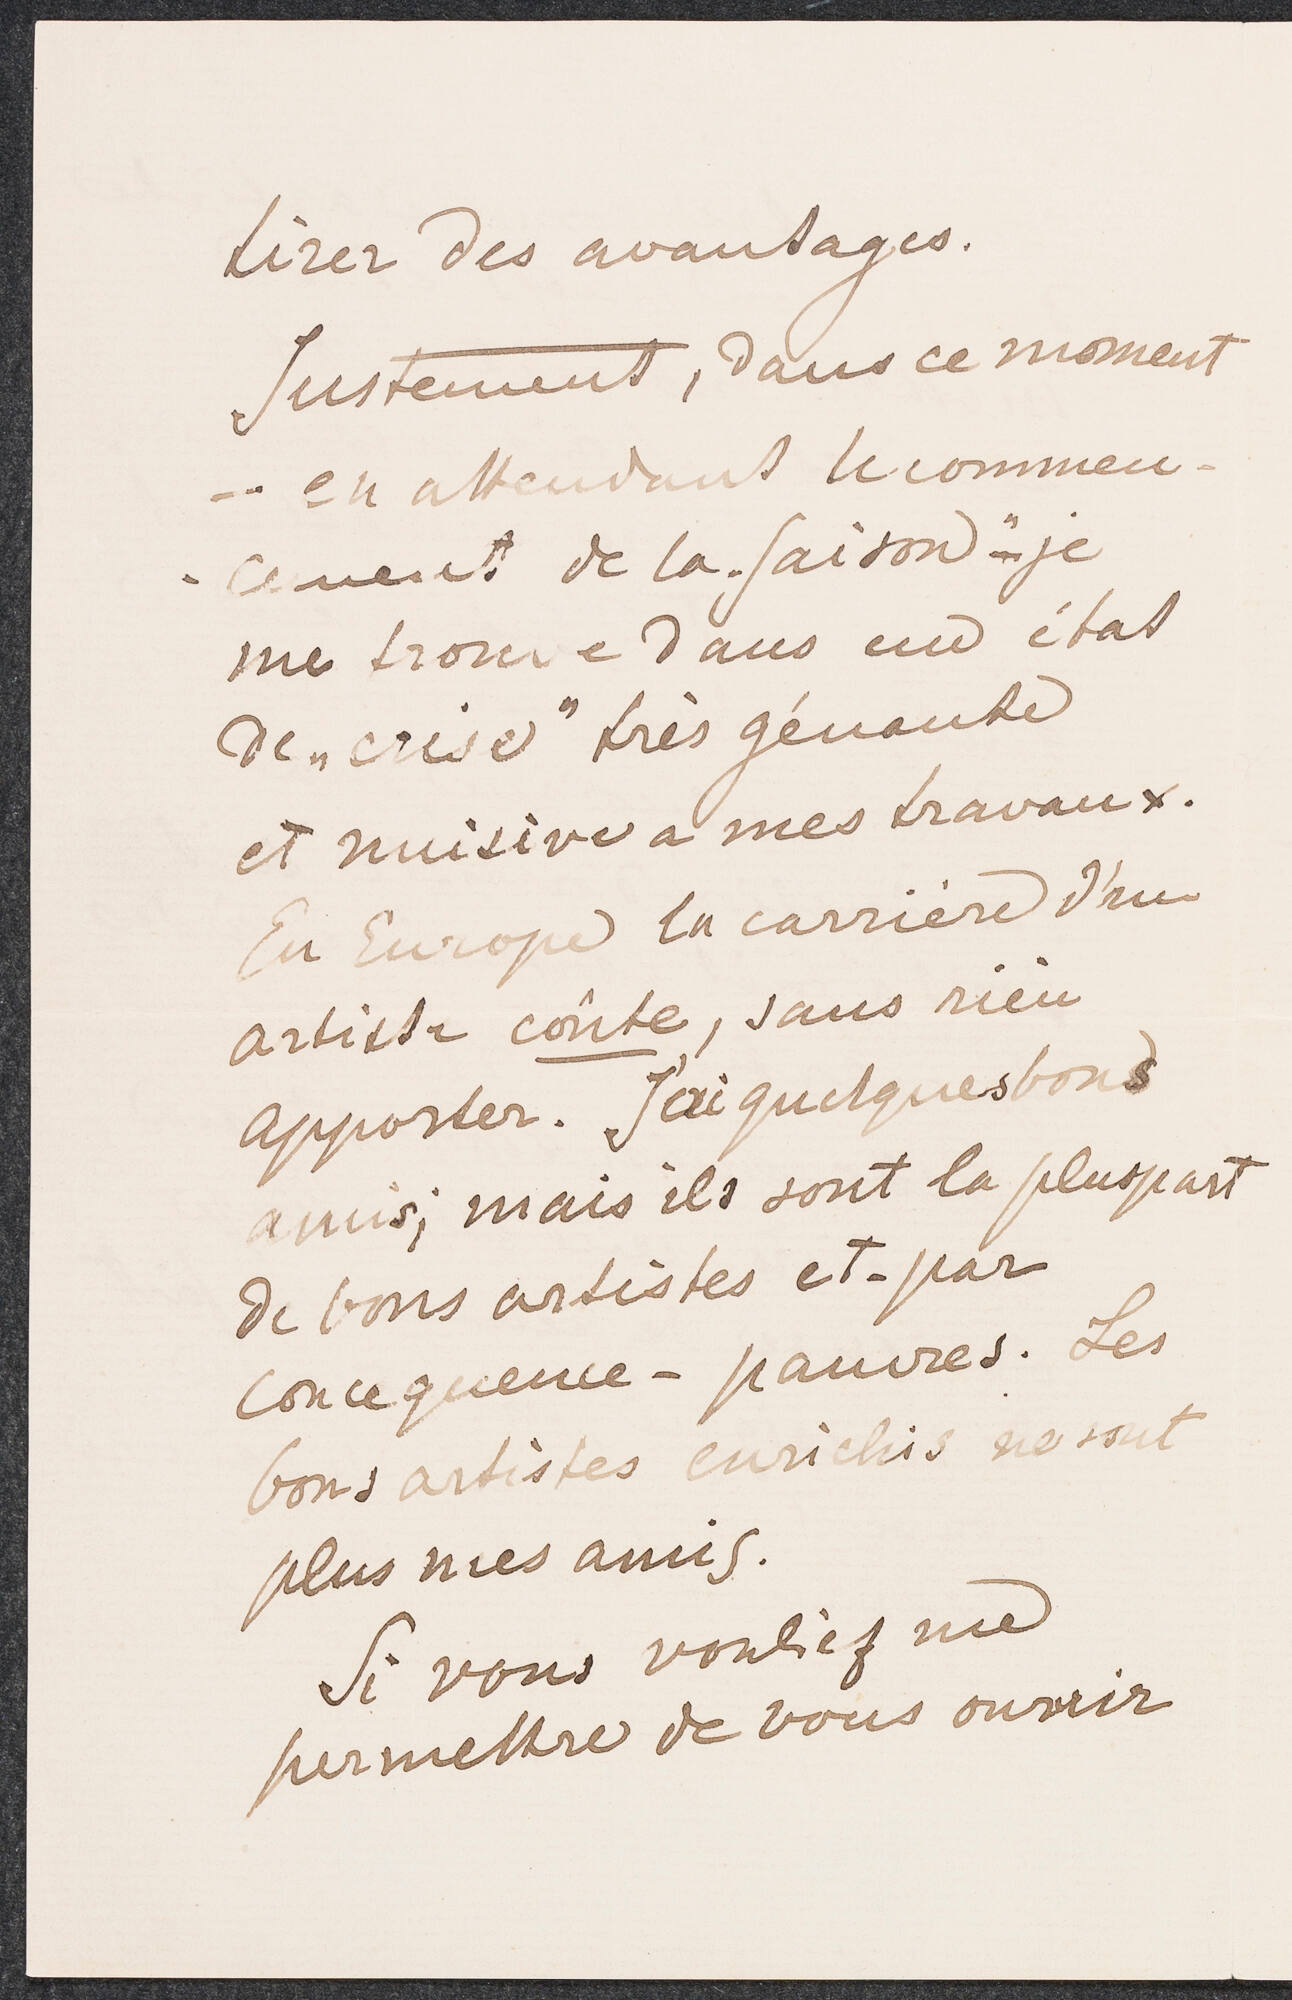 tirer des avantages.
Justement, dans ce moment
-- en attendant le commen-
- cement de la „saison" - je
me trouve dans un état
de „crise" très génante
et nuisive a mes travaux.
En Europe la carrière d'un
artiste coûte, sans rien
apporter. J'ai quelques bons
amis; mais ils sont la pluspart
de bons artistes et - par
concequence - pauvres. Les
bons artistes enrichis ne sont
plus mes amis.
Si vous vouliez me
permettre de vous ouvrir